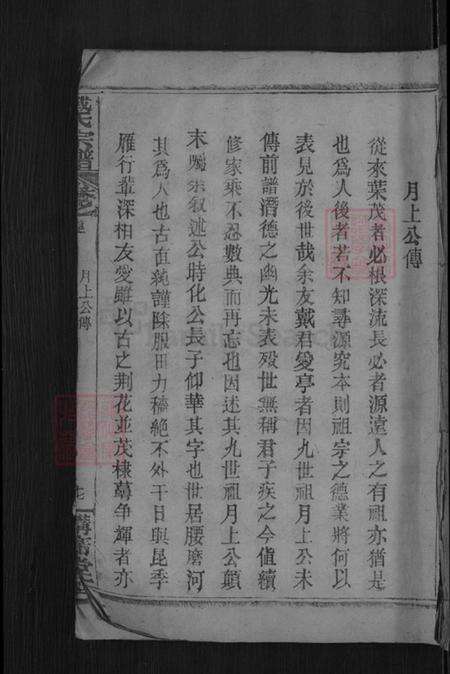 月上公傳
從來葉茂者必根深流長必者源遠人之有祖亦猶是
也爲人後者若不知尋源究本則祖宗之德業將何以
表見於後世哉余友戴君愛亭者因九世祖月上公未
傳前譜潛德之幽光未表殁世無稱君子疾之今值續
修家乘不忍數典而再忘也因述其九世祖月上公顛
末囑余叙述公時化公長子仰華其字也世居腰磨河
其爲人也古直純謹除服田力穡絶不外干日與昆季
雁行輩深相友愛雖以古之荆花並茂棣萼争輝者亦
戴氏宗譜
月上公傳